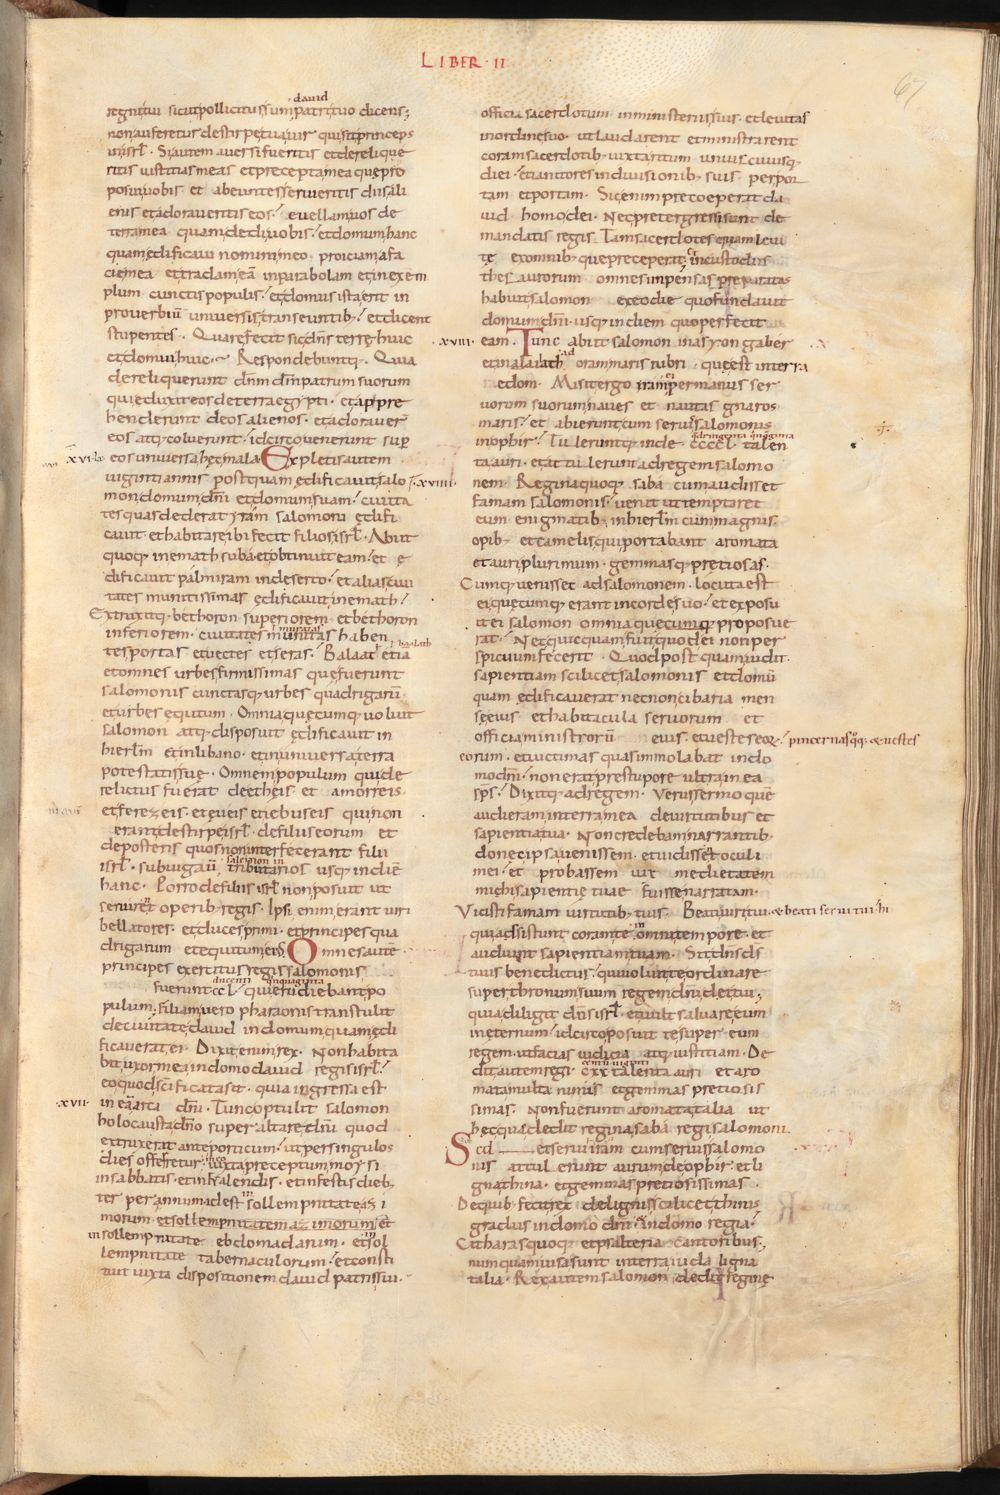 LIBER · II
67
david
regni tui sicut pollicitus sum patri tuo dicens;
non auferetur de stirpe tua uir qui sit princeps
in isrl̄ · Si autem auersi fueritis et derelique
ritis iustitias meas et precepta mea que pro
posui uobis et abeuntes seruieritis diis ali
enis et adoraueritis eos · euellam uos de
terra mea quam dedi uobis · et domum hanc
quam ędificaui nomini meo proiciam a fa
cie mea et tradam eā in parabolam et in exem
plum cunctis populis · et domus ista erit in
prouerbiū uniuersis transeuntib · et dicent
stupentes · Quare fecit sic dn̄s terrę huic
et domui huic · Respondebuntq · Quia
dereliquerunt dn̄m dm̄ patrum suorum
qui eduxit eos de terra egypti · et appre
henderunt deos alienos · et adorauer̄
eos atq; coluerunt · idcirco uenerunt sup̄
·xvi· eos uniuersa hęc mala · Expletis autem
uiginti annis postquam ędificauit salo ·xviii·
mon domum dn̄i et domum suam · ciuita
tes quas dederat yram salomoni ędifi
cauit et habitare ibi fecit filios isrl̄ · Abiit
quoq; in emath suba · et obtinuit eam · et ę
dificauit palmiram in deserto · et alias ciui
tates munitissimas ędificauit in emath ·
Extruxitq; bethoron superiorem et bethoron
muratas
inferiorem · ciuitates munitas haben
baalath
tes portas et uectes et seras · Balaat etiā
et omnes urbes firmissimas que fuerunt
salomonis cunctasq; urbes quadrigarū ·
et urbes equitum · Omnia quęcumq; uoluit
salomon atq; disposuit ędificauit in
hierl̄m et in libano · et in uniuersa terra
potestatis suę · Omnem populum qui de
relictus fuerat de etheis et amorreis
et ferezeis · et eueis et iebuseis qui non
erant de stirpe isrl̄ · de filiis eorum et
de posteris quos non interfecerant filii
salomon in
isrl̄ · subiugauit tributarios usq; in diē
hanc · Porro de filiis isrl̄ non posuit ut
seruirēt operib; regis · Ipsi enim erant uiri
bellatores · et duces primi · et principes qua
drigarum et equitum eius · Omnes autē
principes exercitus regis salomonis
ducenti quinquaginta
fuerunt ccl · qui erudiebant po
pulum · filiam uero pharaonis transtulit
de ciuitate dauid in domum quam ędi
ficauerat ei · Dixit enim rex · Non habita
bit uxor mea in domo dauid regis isrl̄ ·
eo quod sc̄ificata sit · quia ingressa est
·xvii· in eā arca dn̄i · Tunc optulit salomon
holocausta dn̄o super altare dn̄i quod
extruxerat ante porticum · ut per singulos
dies offerretur iuxta preceptum moysi
in sabbatis · et in kalendis · et in festis dieb;
ter per annum id est in sollempnitate azi
morum · et sollempnitatem azimorum et
in sollempnitate ebdomadarum · et in sol
lempnitate tabernaculorum · et consti
tuit iuxta dispositionem dauid patris sui ·
officia sacerdotum in ministeriis suis · et leuitas
in ordine suo · ut laudarent et ministrarent
coram sacerdotib; iuxta ritum unius cuiusq;
diei · et ianitores in diuisionib; suis per por
tam et portam · Sic enim preceperat da
uid homo dei · Nec pretergressi sunt de
mandatis regis · Tam sacerdotes quam leui
tę ex omnib; que preceperit · et in custodiis
thesaurorum omnes inpensas preparatas
habuit salomon ex eo die quo fundauit
domum dn̄i · usq; in diem quo perfecit
·xviii· eam · Tunc abiit salomon in asyon gaber
ad
et in ailath oram maris rubri · quę est in terra
edom · Misit ergo iram per manus ser
uorum suorum naues et nautas gnaros
maris · et abierunt cum seruis salomonis
quadringenta quinquaginta
in ophir · Tulerunt q; inde ccccl · talen
ta auri · et attulerunt ad regem salomo
nem · Regina quoq; saba cum audisset
famam salomonis · uenit ut temptaret
eum enigmatib; in hierl̄m cum magnis
opib; et camelis qui portabant aromata
et auri plurimum · gemmasq; pretiosas ·
Cumq; uenisset ad salomonem · locuta est
ei quęcumq; erant in corde suo · et exposu
it ei salomon omnia quęcumq; proposue
rat · Nec quicquam fuit quod ei non per
spicuum fecerit · Quod postquam uidit ·
sapientiam scilicet salomonis et domū
quam ędificauerat necnon cibaria men
sę eius et habitacula seruorum et
officia ministrorū eius · et uestes eorū · pincernas quoq; et uestes
eorum · et uictimas quas immolabat in do
mo dn̄i · non erat prę stupore ultra in ea
sp̄s · Dixitq; ad regem · Verus sermo quē
audieram in terra mea de uirtutibus et
sapientia tua · Non credebam narrantib;
donec ip̄sa uenissem · et uidissent oculi
mei · et probassem uix medietatem
michi sapientię tuae fuisse narratam ·
Vicisti famam uirtutib; tuis · Beati uiri tui · et beati serui tui hi
qui adsistunt coram te in omni tempore · et
audiunt sapientiam tuam · Sit dn̄s d̄s
tuus benedictus · qui uoluit te ordinare
super thronum suum regem dn̄i dei tui ·
quia diligit d̄s isrl̄ · et uult saluare eum
in ęternum · idcirco posuit te super eum
regem · ut facias iudicia atq; iustitiam · De
centum uiginti
dit autem regi · cxx talenta auri et aro
mata multa nimis et gemmas pretiosis
simas · Non fuerunt aromata talia ut
hęc quę dedit regina saba regi salomoni
Sed et serui iram cum seruis salomo
nis attulerunt aurum de ophir · et li
gna thina · et gemmas pretiosissimas ·
De quib; fecit rex de lignis scilicet thinis
gradus in domo dn̄i · et in domo regia ·
Citharas quoq; et psalteria cantoribus ·
numquam uisa sunt in terra iuda ligna
talia · Rex autem salomon dedit reginę